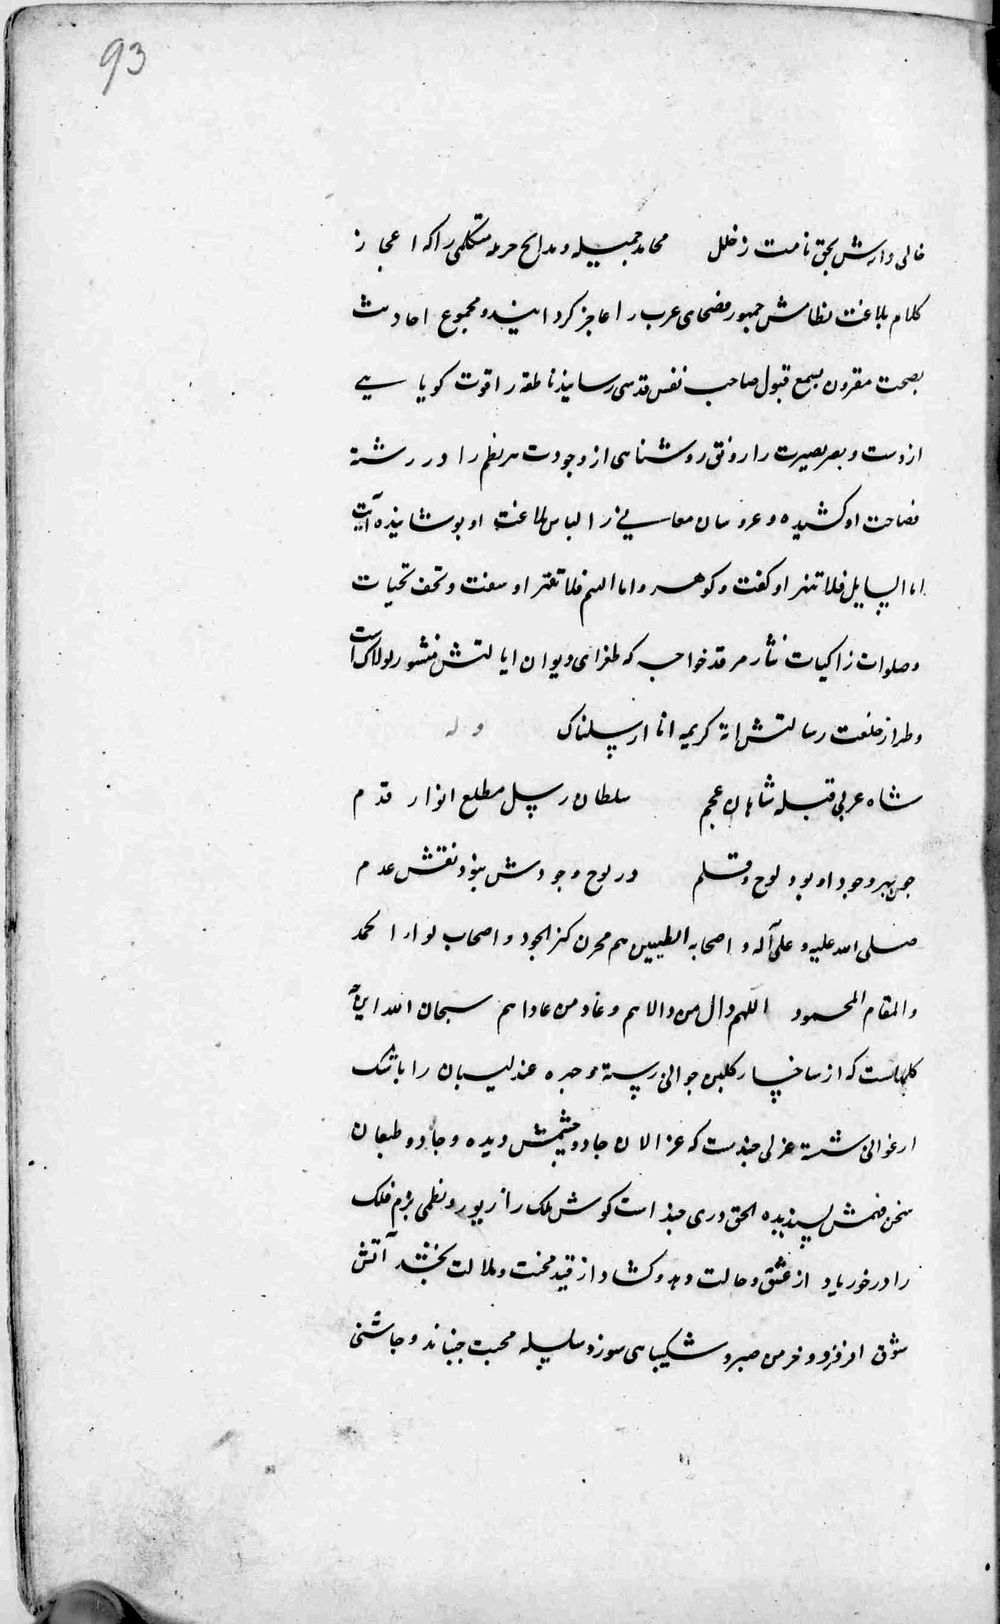 93
خالی دارش بحق نامت ز خلل محامد جمیله و مدایح جزیله متکلمی را که اعجاز
کلام بلاغت نظامش جمهور فصحای عرب را عاجز گردانیده و مجموع احادیث
بصحت مقرون بسمع قبول صاحب نفس قدسی رسانیده ناطقه را قوت گویایی
ازوست و بصر بصیرت را رونق روشنایی از وجودت سر نظم را در رشته
فصاحت او کشیده و عروسان معانی را لباس بلاغت او پوشانیده آیت
اما السایل فلا تنهر او گفت و گوهر و اما الیتیم فلا تقهر او سفت و تحف تحیات
و صلوات زاکیات نثار مرقد خواجه که طغرای دیوان ایالتش منشور لولاک است
و طراز خلعت رسالتش آیة کریمه انا ارسلناک وله
شاه عربی قبله شاهان عجم سلطان رسل مطلع انوار قدم
چون بهر وجود او بود لوح و قلم در لوح وجودش نبود نقش عدم
صلی الله علیه و علی آله و اصحابه الطیبین هم مخزن کنز الجود و اصحاب لواء الحمد
والمقام المحمود اللهم وال من والاهم و عاد من عاداهم سبحان الله این چه
گلهاست که از شاخسار گلبن جوانی رسته و چهره عندلیبان را باشک
ارغوانی شسته غزلی چندست که غزالان جادو چشمش دیده و جادو طبعان
سخن فهمش پسندیده الحق دری چند است گوش ملک را زیور و نظمی بزم فلک
را درخور یاد از عشق و حالت دهد و گشاد از قید محنت و ملالت بخشد آتش
شوق افروزد و خرمن صبر و شکیبایی سوزد سلسله محبت جنباند و چاشنی